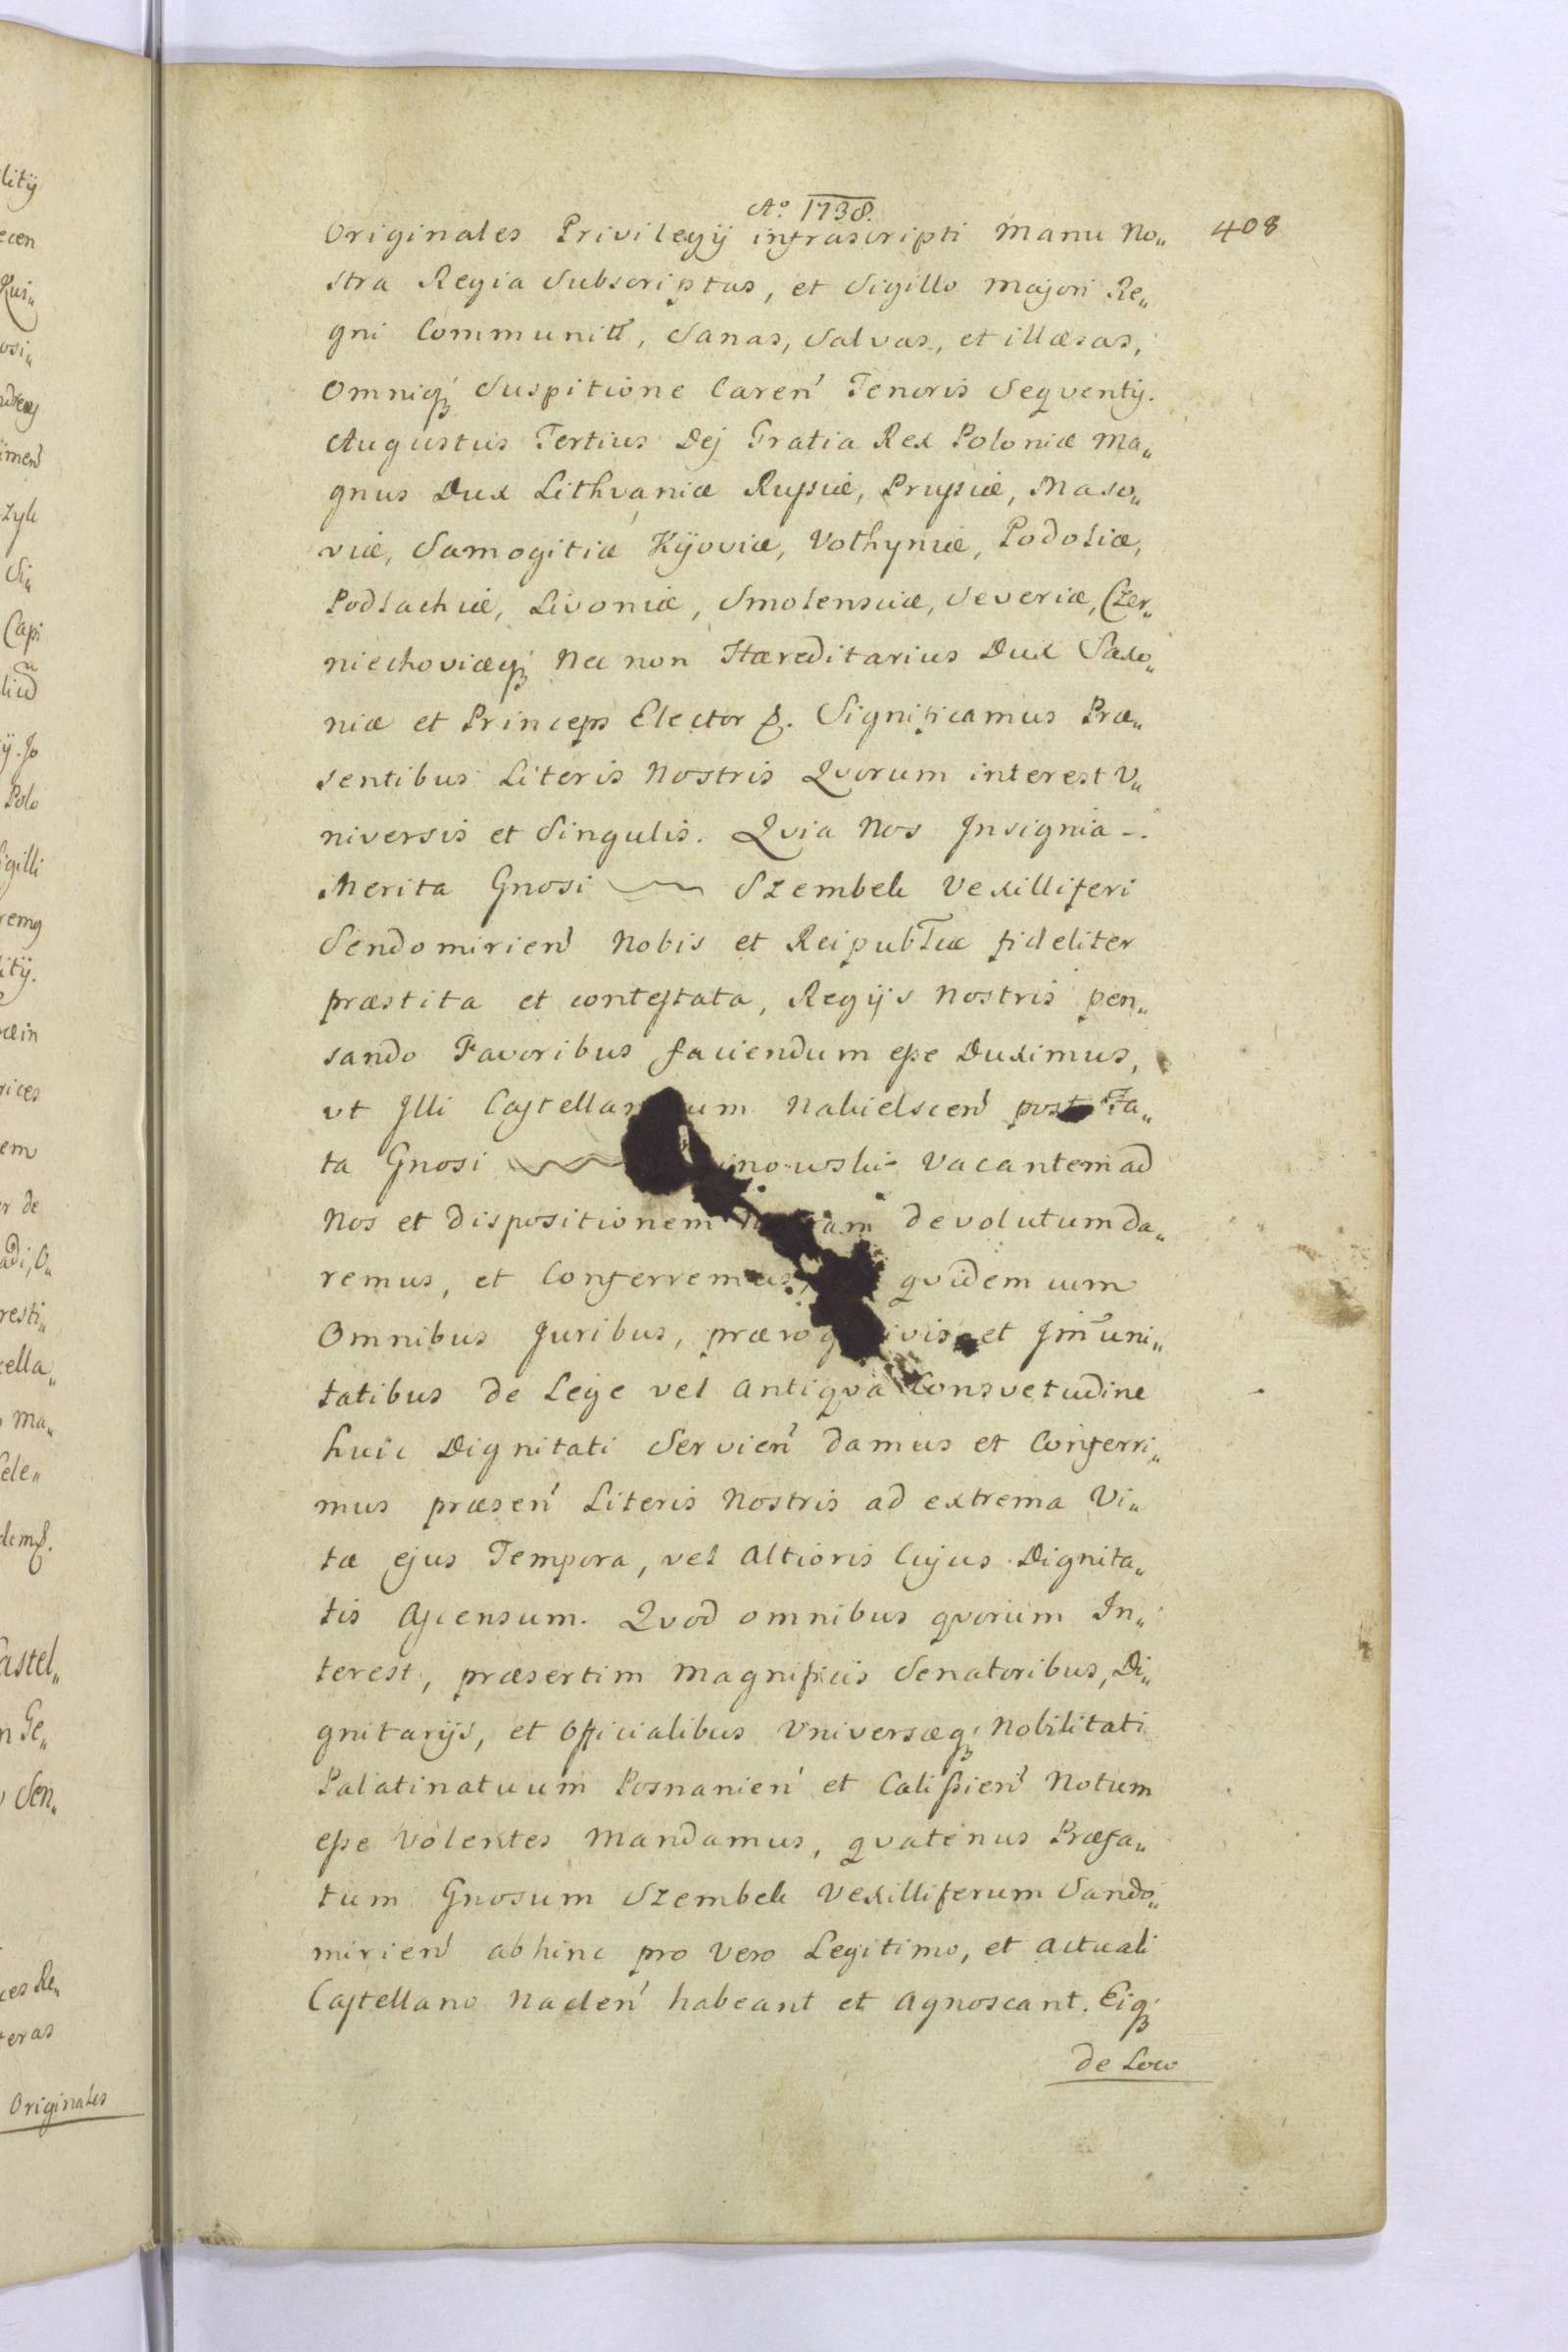 Aº 1738.
Originales Privilegij infrascripti Manu No„ 408
stra Regia Subscriptas, et Sigillo Majori Re„
gni Communitt, Sanas, Salvas, et illæsas,
Omniqȝ Suspitione Caren̄ Tenoris Seqventij.
Augustus Tertius Dej Gratia Rex Poloniæ Ma„
gnus Dux Lithvaniæ Russiæ, Prussiæ, Maso„
viæ, Samogitiæ Kijoviæ, Volhyniæ, Podoliæ,
Podlachiæ, Livoniæ, Smolensciæ, Severiæ, Czer„
niechoviæqȝ Nec non Hæreditarius Dux Saxo„
niæ et Princeps Elector &. Significamus Præ„
sentibus Literis Nostris Qvorum interest V„
niversis et Singulis. Qvia Nos Insignia -.
Merita Gnosi Szembek Vexilliferi
Sendomirien̄ Nobis et Reipublicæ fideliter
præstita et contestata, Regijs Nostris pen„
sando Favoribus faciendum esse Duximus,
vt Illi Castellan um Nakielscen̄ post Fa„
ta Gnosi inowski Vacantem ad
Nos et dispositionem ram devolutum da„
remus, et Conferremus, qvidem cum
Omnibus Juribus, prærog ivis et Im̄uni„
tatibus de Lege vel Antiqva Consvetudine
huic Dignitati Servien̄ damus et Conferri„
mus præsen̄ Literis Nostris ad extrema Vi„
tæ ejus Tempora, vel Altioris Cujus Dignita„
tis Ascensum. Qvod omnibus qvorum In„
terest, præsertim Magnificis Senatoribus, Di„
gnitarijs, et Officialibus Vniversæqȝ Nobilitati
Palatinatuum Posnanien̄ et Calissien̄ Notum
esse Volentes Mandamus, qvatenus Præfa„
tum Gnosum Szembek Vexilliferum Sando„
mirien̄ abhinc pro Vero Legitimo, et Actuali
Castellano Naclen̄ habeant et Agnoscant. Eiqȝ
de Loco
lity
Capi
Polo
Sigilli
rices
em
r de
resti„
cella„
Ma„
Sele„
Castel„
Ge„
Sen„
teras
Originales